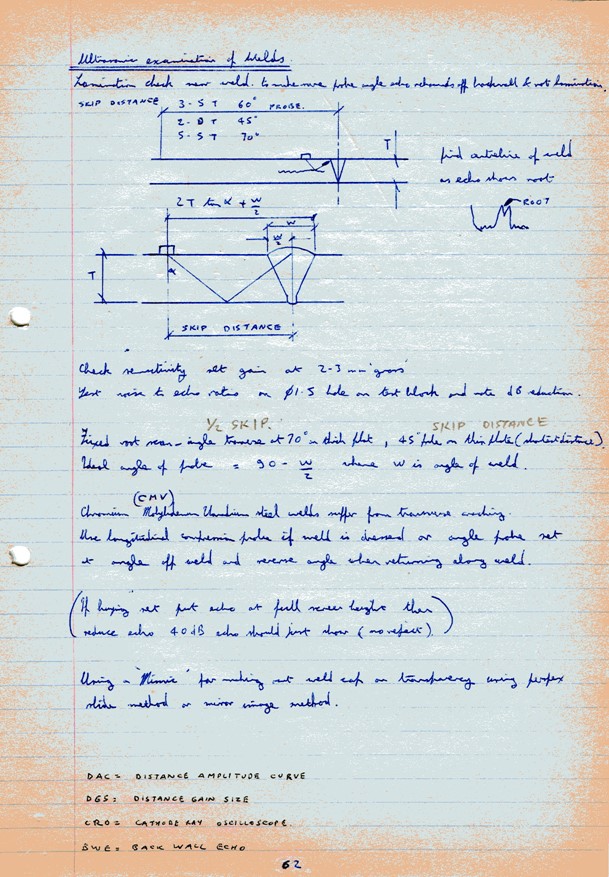 Ultrasonic examination of Welds.
Lamination check near weld. to make sure probe angle echo rebounds off backwall & not lamination.
SKIP DISTANCE 3-5 T 60° PROBE.
2-8 T 45°
5-5 T 70°
T
find centreline of weld
as echo shows root
ROOT
2T tan α + W/2
W
W/2
T
α
SKIP DISTANCE
Check sensitivity set gain at 2-3 mm grass
Test noise to echo ratio on Ø1.5 hole on test block and note dB reduction.
1/2 SKIP. SKIP DISTANCE
Fixed root scan - angle traverse at 70° on thick plate, 45° probe on thin plate (shortest distance).
Ideal angle of probe = 90 - W/2 where W is angle of weld.
(CMV)
Chromium Molybdenum Vanadium steel welds suffer from transverse cracking.
Use longitudinal compression probe if weld is dressed or angle probe set
at angle off weld and reverse angle when returning along weld.
(If buying set put echo at full screen height then
reduce echo 40dB echo should just show (no reject).)
Using a "Mimic" for making out weld cap on transparency using perspex
slide method or mirror image method.
DAC = DISTANCE AMPLITUDE CURVE
DGS = DISTANCE GAIN SIZE
CRO = CATHODE RAY OSCILLOSCOPE.
BWE = BACK WALL ECHO
62